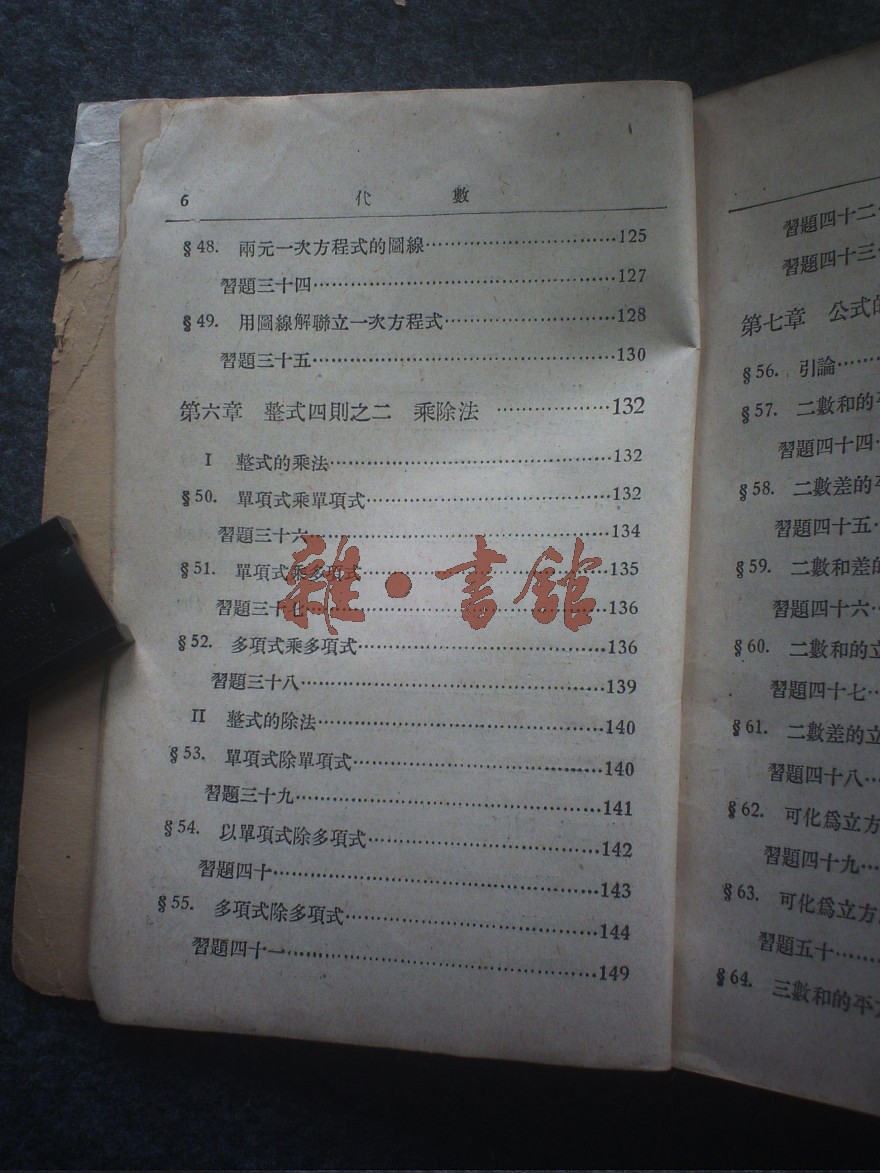 6 代 數
§48. 兩元一次方程式的圖線……125
習題三十四……127
§49. 用圖線解聯立一次方程式……128
習題三十五……130
第六章 整式四則之二 乘除法……132
I 整式的乘法……132
§50. 單項式乘單項式……132
習題三十六……134
§51. 單項式乘多項式……135
習題三十七……136
§52. 多項式乘多項式……136
習題三十八……139
II 整式的除法……140
§53. 單項式除單項式……140
習題三十九……141
§54. 以單項式除多項式……142
習題四十……143
§55. 多項式除多項式……144
習題四十一……149
雜·書館
習題四十二
習題四十三
第七章 公式的
§56. 引論……
§57. 二數和的平
習題四十四
§58. 二數差的平
習題四十五
§59. 二數和差的
習題四十六
§60. 二數和的立
習題四十七
§61. 二數差的立
習題四十八
§62. 可化爲立方
習題四十九
§63. 可化爲立方
習題五十……
§64. 三數和的平方